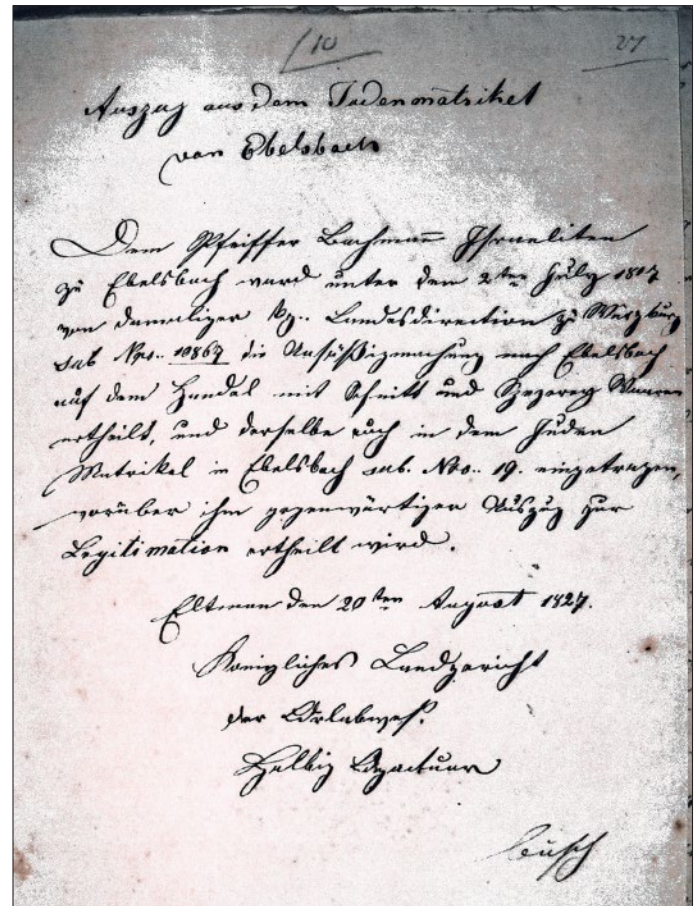 10 27
Auszug aus dem Judenmatrikel
von Ebelsbach
Dem Pfeiffer Bachmann Israeliten
zu Ebelsbach ward unter dem 2ten July 1817
von damaliger Kg.. Landesdirection zu Würzburg
sub Nro.. 10867 die Ansäßigmachung nach Ebelsbach
auf dem Handel mit Schnitt und Spezerey Waaren
ertheilt, und derselbe auch in dem Juden
Matrikel in Ebelsbach sub. Nro.. 19. eingetragen,
worüber ihm gegenwärtiger Auszug zur
Legitimation ertheilt wird.
Eltmann den 20ten August 1827.
Königliches Landgericht
der
Helbig Actuar
Busch